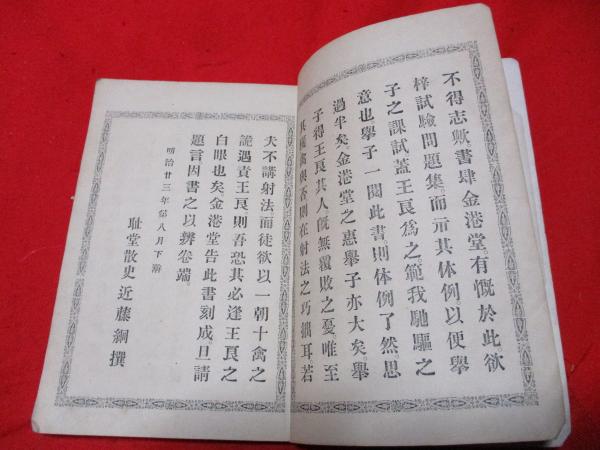 不得志歟書肆金港堂有慨於此欲
梓試驗問題集而示其体例以便擧
子之課試蓋王良爲之範我馳驅之
意也擧子一閲此書則体例了然思
過半矣金港堂之惠擧子亦大矣擧
子得王良其人既無覆敗之憂唯至
其獲禽與否則在射法之巧拙耳若
夫不講射法而徒欲以一朝十禽之
詭遇責王良則吾恐其必逢王良之
白眼也矣金港堂告此書刻成且請
題言因書之以辨卷端
明治廿三年第八月下澣
耻堂散史近藤綱撰